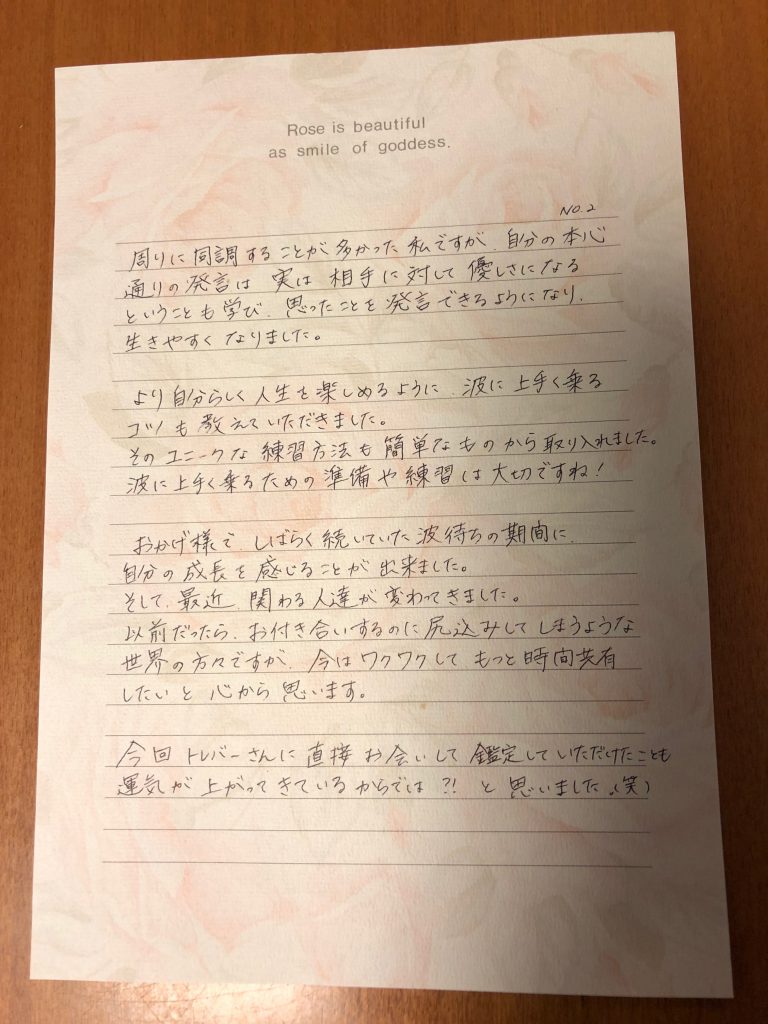 Rose is beautiful
as smile of goddess.
NO.2
周りに同調することが多かった私ですが、自分の本心
通りの発言は 実は 相手に対して 優しさになる
ということも学び、思ったことを発言できるようになり、
生きやすくなりました。
より自分らしく人生を楽しめるように、波に上手く乗る
コツも教えていただきました。
そのユニークな練習方法も簡単なものから取り入れました。
波に上手く乗るための準備や練習は大切ですね!
おかげ様で、しばらく続いていた波待ちの期間に、
自分の成長を感じることが出来ました。
そして、最近、関わる人達が変わってきました。
以前だったら、お付き合いするのに尻込みしてしまうような
世界の方々ですが、今はワクワクしてもっと時間共有
したいと心から思います。
今回トレバーさんに直接お会いして鑑定していただけたことも
運気が上がってきているからでは?! と思いました。(笑)